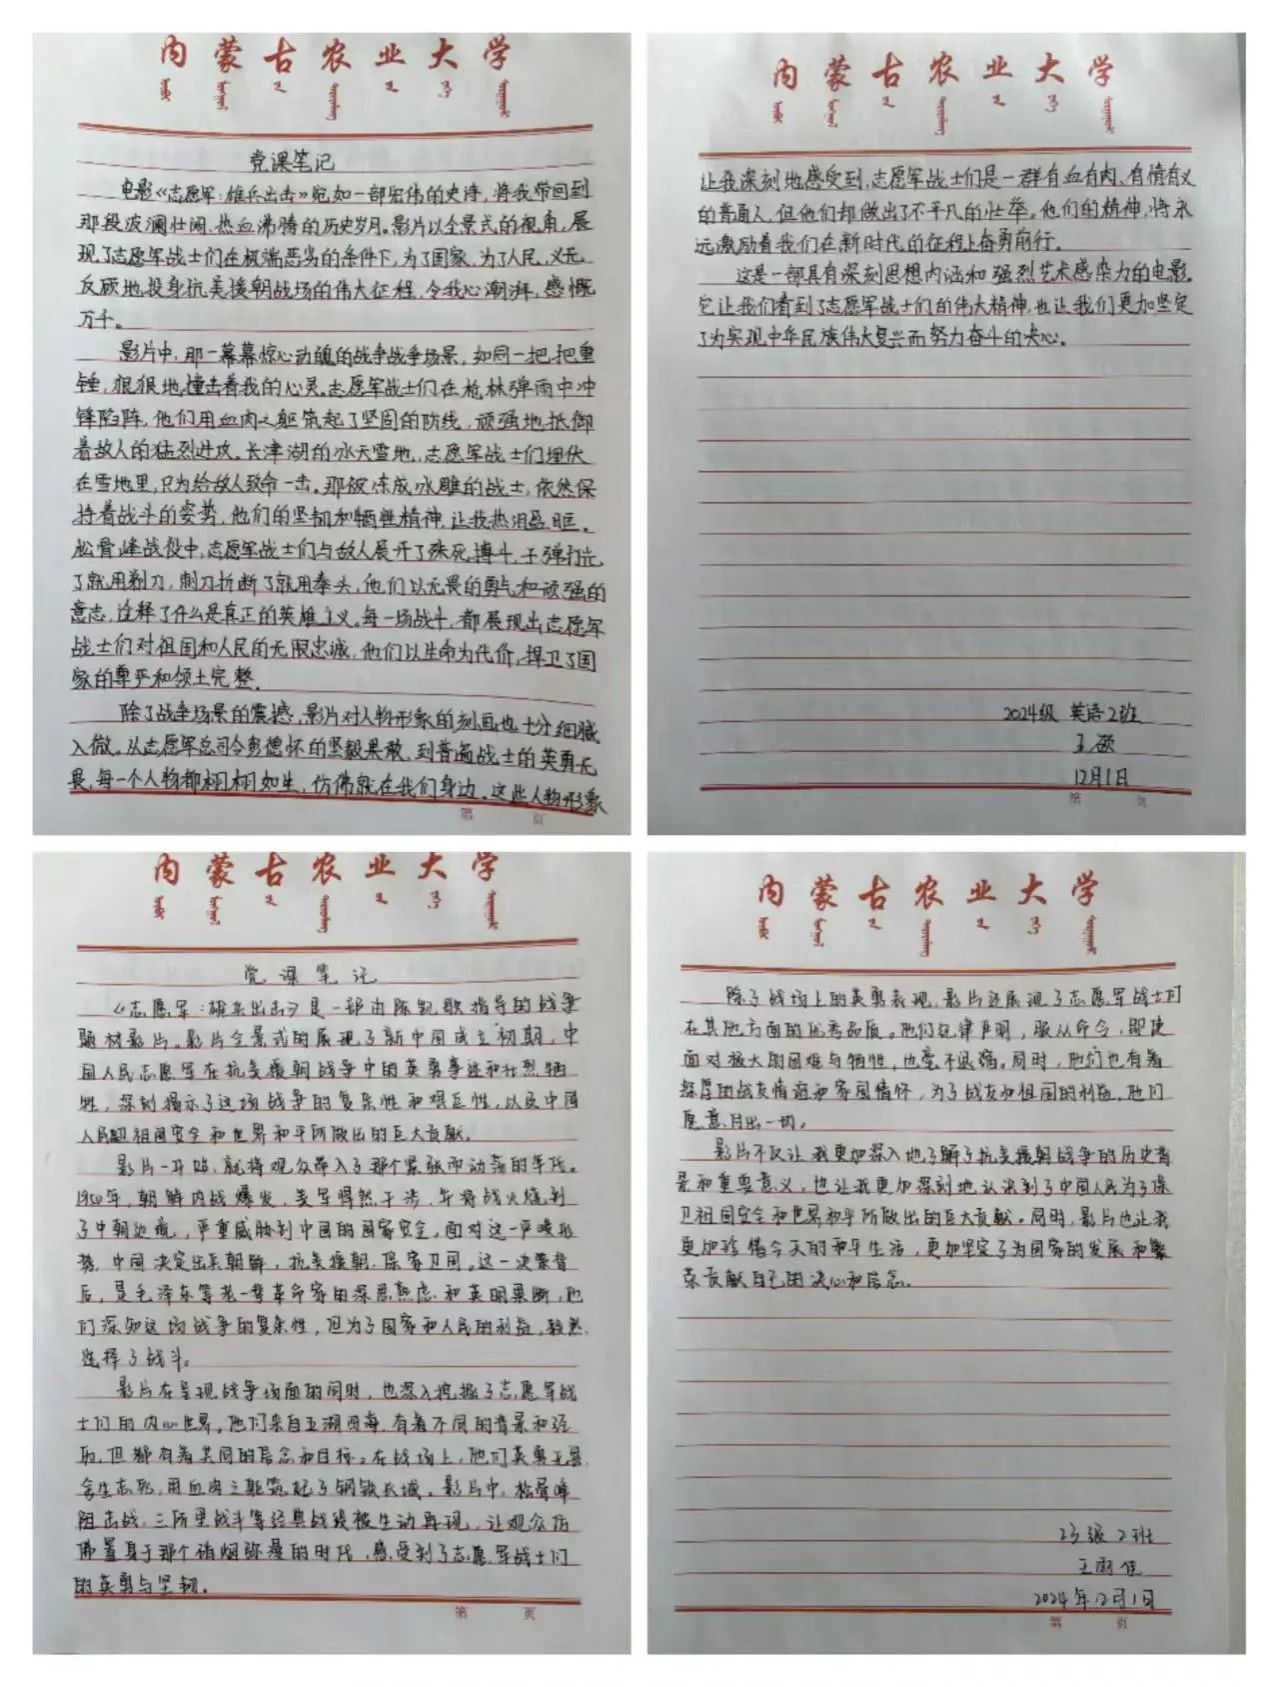 内蒙古农业大学
党课笔记
电影《志愿军:雄兵出击》宛如一部宏伟的史诗,将我带回到
那段波澜壮阔、热血沸腾的历史岁月。影片以全景式的视角,展
现了志愿军战士们在极端恶劣的条件下,为了国家、为了人民,义无
反顾地投身抗美援朝战场的伟大征程,令我心潮湃,感慨
万千。
影片中,那一幕幕惊心动魄的战争战争场景,如同一把把重
锤,狠狠地撞击着我的心灵。志愿军战士们在枪林弹雨中冲
锋陷阵,他们用血肉之躯筑起了坚固的防线,顽强地抵御
着敌人的猛烈进攻。长津湖的冰天雪地,志愿军战士们埋伏
在雪地里,只为给敌人致命一击。那被冻成冰雕的战士,依然保
持着战斗的姿势,他们的坚韧和牺牲精神,让我热泪盈眶。
松骨峰战役中,志愿军战士们与敌人展开了殊死搏斗,子弹打光
了就用刺刀,刺刀折断了就用拳头,他们以无畏的勇气和顽强的
意志,诠释了什么是真正的英雄主义。每一场战斗,都展现出志愿军
战士们对祖国和人民的无限忠诚,他们以生命为代价,捍卫了国
家的尊严和领土完整。
除了战争场景的震撼,影片对人物形象的刻画也十分细腻
入微。从志愿军总司令彭德怀的坚毅果敢,到普通战士的英勇无
畏,每一个人物都栩栩如生,仿佛就在我们身边。这些人物形象
第 页
内蒙古农业大学
让我深刻地感受到,志愿军战士们是一群有血有肉、有情有义
的普通人,但他们却做出了不平凡的壮举。他们的精神,将永
远激励着我们在新时代的征程上奋勇前行。
这是一部具有深刻思想内涵和强烈艺术感染力的电影。
它让我们看到了志愿军战士们的伟大精神,也让我们更加坚定
了为实现中华民族伟大复兴而努力奋斗的决心。
2024级 英语2班
王颂
12月1日
第 页
内蒙古农业大学
党课笔记
《志愿军:雄兵出击》是一部由陈凯歌指导的战争
题材影片。影片全景式的展现了新中国成立初期,中
国人民志愿军在抗美援朝战争中的英勇事迹和壮烈牺
牲,深刻揭示了这场战争的复杂性和艰巨性,以及中国
人民为祖国安全和世界和平所做出的巨大贡献。
影片一开始,就将观众带入了那个紧张而动荡的年代。
1950年,朝鲜内战爆发,美军悍然干涉,并将战火烧到
了中朝边境,严重威胁到中国的国家安全。面对这一严峻形
势,中国决定出兵朝鲜,抗美援朝、保家卫国。这一决策背
后,是毛泽东等老一辈革命家的深思熟虑和英明果断,他
们深知这场战争的复杂性,但为了国家和人民的利益,毅然
选择了战斗。
影片在呈现战争场面的同时,也深入挖掘了志愿军战
士们的内心世界。他们来自五湖四海,有着不同的背景和经
历,但都有着共同的信念和目标。在战场上,他们英勇无畏,
舍生忘死,用血肉之躯筑起了钢铁长城。影片中,松骨峰
阻击战、三所里战斗等经典战役被生动再现,让观众仿
佛置身于那个硝烟弥漫的时代,感受到了志愿军战士们
的英勇与坚韧。
第 页
内蒙古农业大学
除了战场上的英勇表现,影片还展现了志愿军战士们
在其他方面的优秀品质。他们纪律严明,服从命令,即使
面对极大的困难与牺牲,也毫不退缩。同时,他们也有着
深厚的战友情谊和家国情怀,为了战友和祖国的利益,他们
愿意付出一切。
影片不仅让我更加深入地了解了抗美援朝战争的历史背
景和重要意义,也让我更加深刻地认识到了中国人民为了保
卫祖国安全和世界和平所做出的巨大贡献。同时,影片也让我
更加珍惜今天的和平生活,更加坚定了为国家的发展和繁
荣贡献自己的决心和信念。
2班
王雨佳
2024年12月1日
第 页